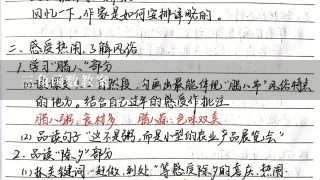 回忆一下,作家是如何安排详略的。
二、感受热闹,了解风俗
1.学习“腊八”部分
然段,勾画出最能体现“腊八节”风俗特点
的地方。结合自己过年的感受作批注
腊八粥:食材多 腊八蒜:色味双美
(2)品读句子“这不是粥,而是小型的农业产品展览会”
2.品读“除夕”部分
(1)抓关键词“赶做,到处”等感受除夕的喜庆、热闹.
三角函数教案